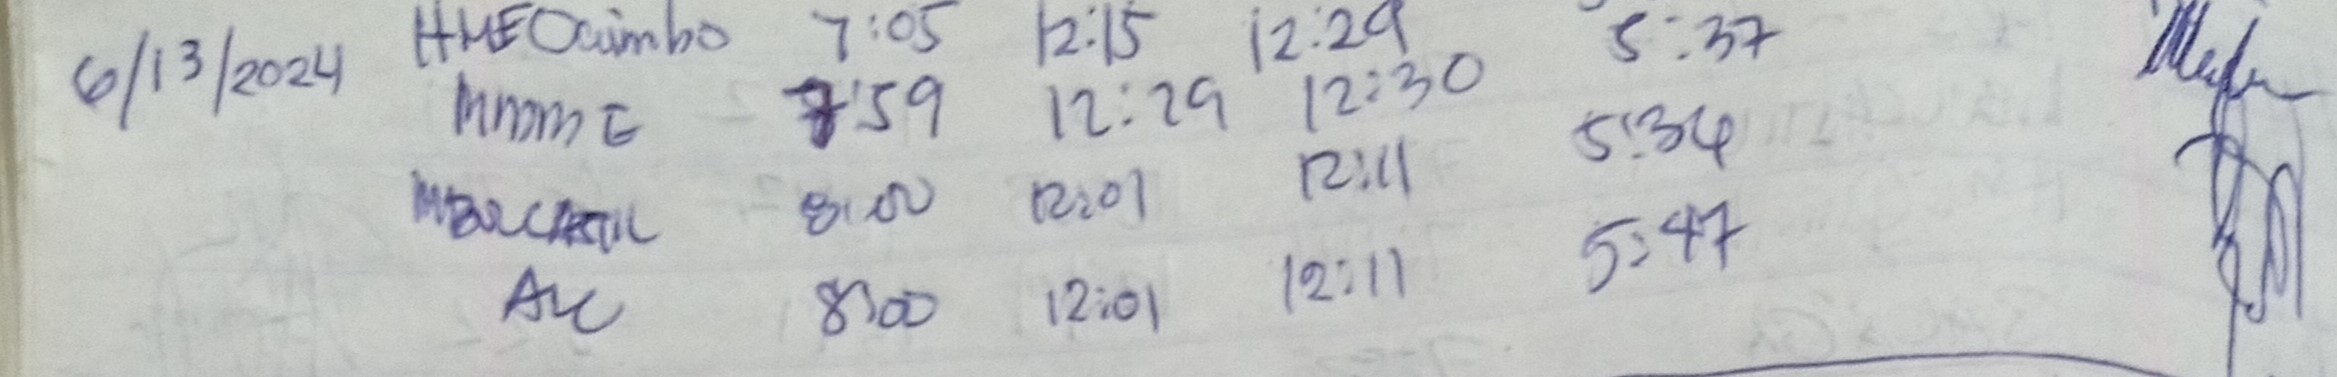 6/13/2024 HMEOcimbo 7:05 12:15 12:29 5:37
MMME 7:59 12:29 12:30 5:34
8:00 12:01 12:11 5:47
ALC 8:00 12:01 12:11